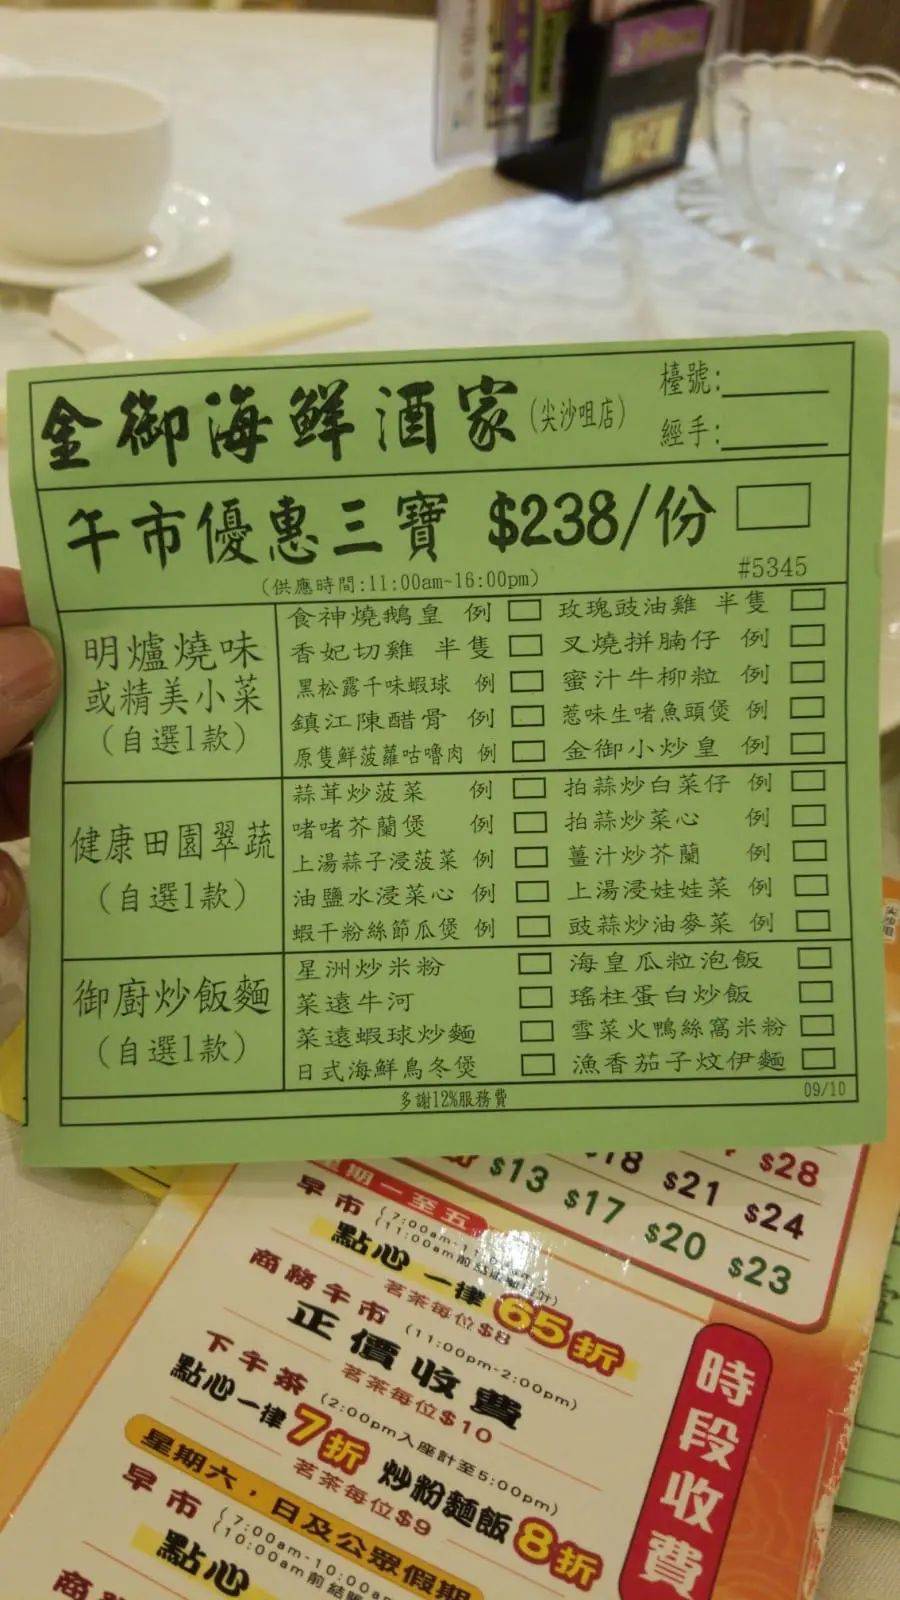 金御海鮮酒家(尖沙咀店)
檯號:
經手:
午市優惠三寶 $238/份
(供應時間:11:00am~16:00pm)
#5345
明爐燒味
或精美小菜
(自選1款)
食神燒鵝皇 例 玫瑰豉油雞 半隻
香妃切雞 半隻 叉燒拼腩仔 例
黑松露千味蝦球 例 蜜汁牛柳粒 例
鎮江陳醋骨 例 惹味生啫魚頭煲 例
原隻鮮菠蘿咕嚕肉 例 金御小炒皇 例
健康田園翠蔬
(自選1款)
蒜茸炒菠菜 例 拍蒜炒白菜仔 例
啫啫芥蘭煲 例 拍蒜炒菜心 例
上湯蒜子浸菠菜 例 薑汁炒芥蘭 例
油鹽水浸菜心 例 上湯浸娃娃菜 例
蝦干粉絲節瓜煲 例 豉蒜炒油麥菜 例
御廚炒飯麵
(自選1款)
星洲炒米粉 海皇瓜粒泡飯
菜遠牛河 瑤柱蛋白炒飯
菜遠蝦球炒麵 雪菜火鴨絲窩米粉
日式海鮮烏冬煲 漁香茄子炆伊麵
多謝12%服務費
09/10
$18 $28
$13 $21 $24
$17 $20 $23
星期一至五
早市 (7:00am-11
(11:00am前
點心一律65折
茗茶每位$8
商務午市 (11:00pm-2:00pm)
正價收費
茗茶每位$10
下午茶 (2:00pm入座計至5:00pm)
點心一律7折 炒粉麵飯8折
茗茶每位$9
星期六,日及公眾假期
早市 (7:00am-10:00a
(10:00am前結
點心
商
時段收費
尖沙咀